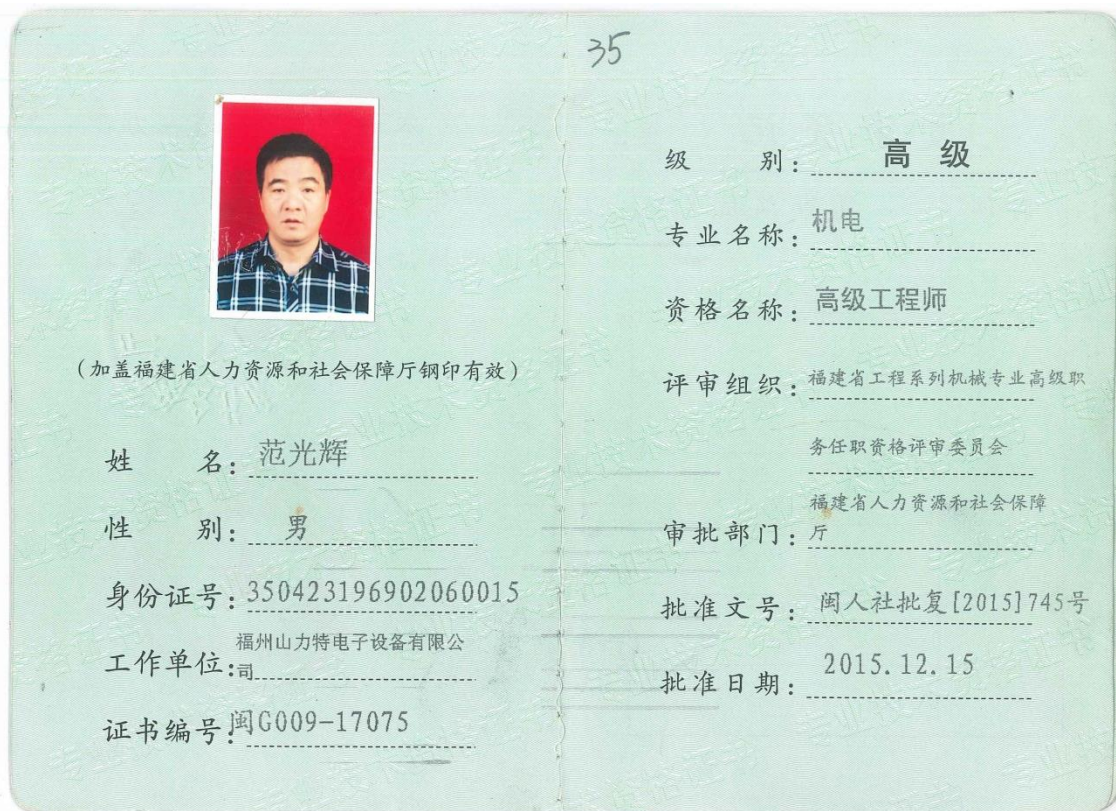 35
(加盖福建省人力资源和社会保障厅钢印有效)
姓 名: 范光辉
性 别: 男
身份证号: 350423196902060015
工作单位: 福州山力特电子设备有限公
司
证书编号: 闽G009-17075
级 别: 高 级
专业名称: 机电
资格名称: 高级工程师
评审组织: 福建省工程系列机械专业高级职
务任职资格评审委员会
审批部门: 福建省人力资源和社会保障
厅
批准文号: 闽人社批复[2015]745号
批准日期: 2015.12.15